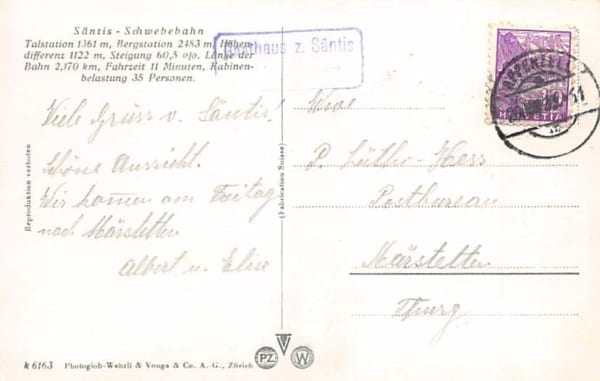 Säntis - Schwebebahn
Talstation 1361 m, Bergstation 2483 m, Höhen-
differenz 1122 m, Steigung 60,5 o/o. Länge der
Bahn 2,170 km, Fahrzeit 11 Minuten, Kabinen-
belastung 35 Personen.
Gasthaus z. Säntis
Viele Grüss v. Säntis!
Schöne Aussicht.
Wir kommen am Freitag
nach Märstetten
Albert u. Elise
Reproduktion verboten
(Fabrication Suisse)
APPENZELL
HELVETIA
P. Lüthi-Hess
Postbureau
Märstetten
Thurg
k 6163 Photoglob-Wehrli & Vouga & Co. A.-G., Zürich
PZ W